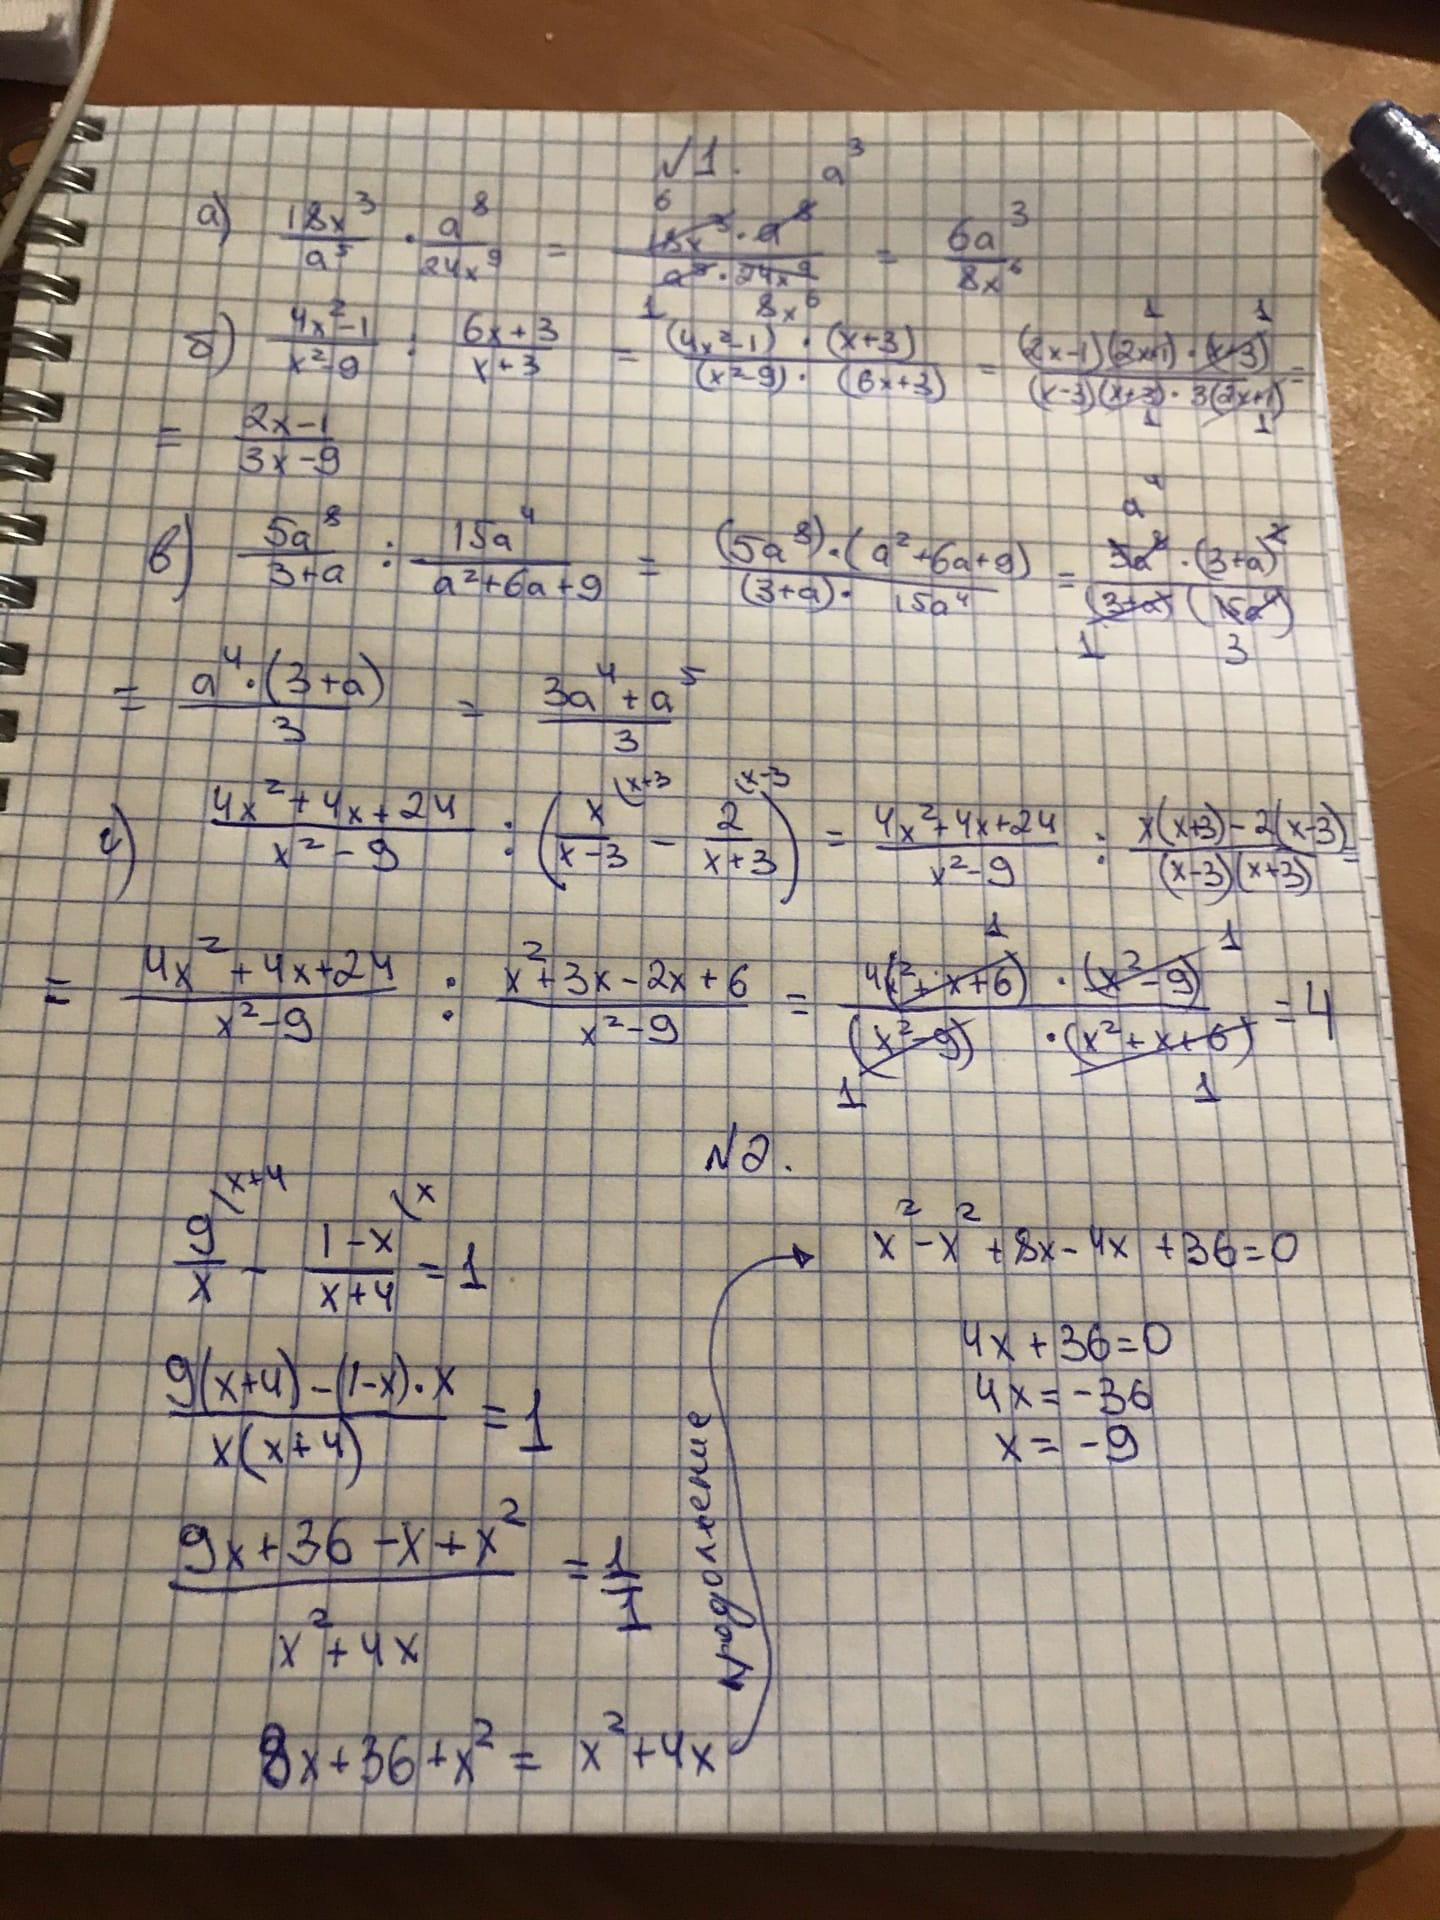 №1.
а) 18x³/a⁵ · a⁸/24x⁹ = 18x³ · a⁸/a⁵ · 24x⁹ = 6a³/8x⁶
б) 4x²-1/x²-9 : 6x+3/x+3 = (4x²-1) · (x+3)/(x²-9) · (6x+3) = (2x-1)(2x+1) · (x+3)/(x-3)(x+3) · 3(2x+1) =
= 2x-1/3x-9
в) 5a⁸/3+a : 15a⁴/a²+6a+9 = (5a⁸) · (a²+6a+9)/(3+a) · 15a⁴ = 5a⁸ · (3+a)²/(3+a)(15a⁴)
= a⁴ · (3+a)/3 = 3a⁴+a⁵/3
г) 4x²+4x+24/x²-9 : (x\x+3/x-3 - 2\x-3/x+3) = 4x²+4x+24/x²-9 : x(x+3)-2(x-3)/(x-3)(x+3) =
= 4x²+4x+24/x²-9 : x²+3x-2x+6/x²-9 = 4(x²+x+6) · (x²-9)/(x²-9) · (x²+x+6) = 4
№2.
9\x+4/x - 1-x\x/x+4 = 1
9(x+4)-(1-x)·x/x(x+4) = 1
9x+36-x+x²/x²+4x = 1/1
8x+36+x² = x²+4x
продолжение
x²-x²+8x-4x+36=0
4x+36=0
4x=-36
x=-9